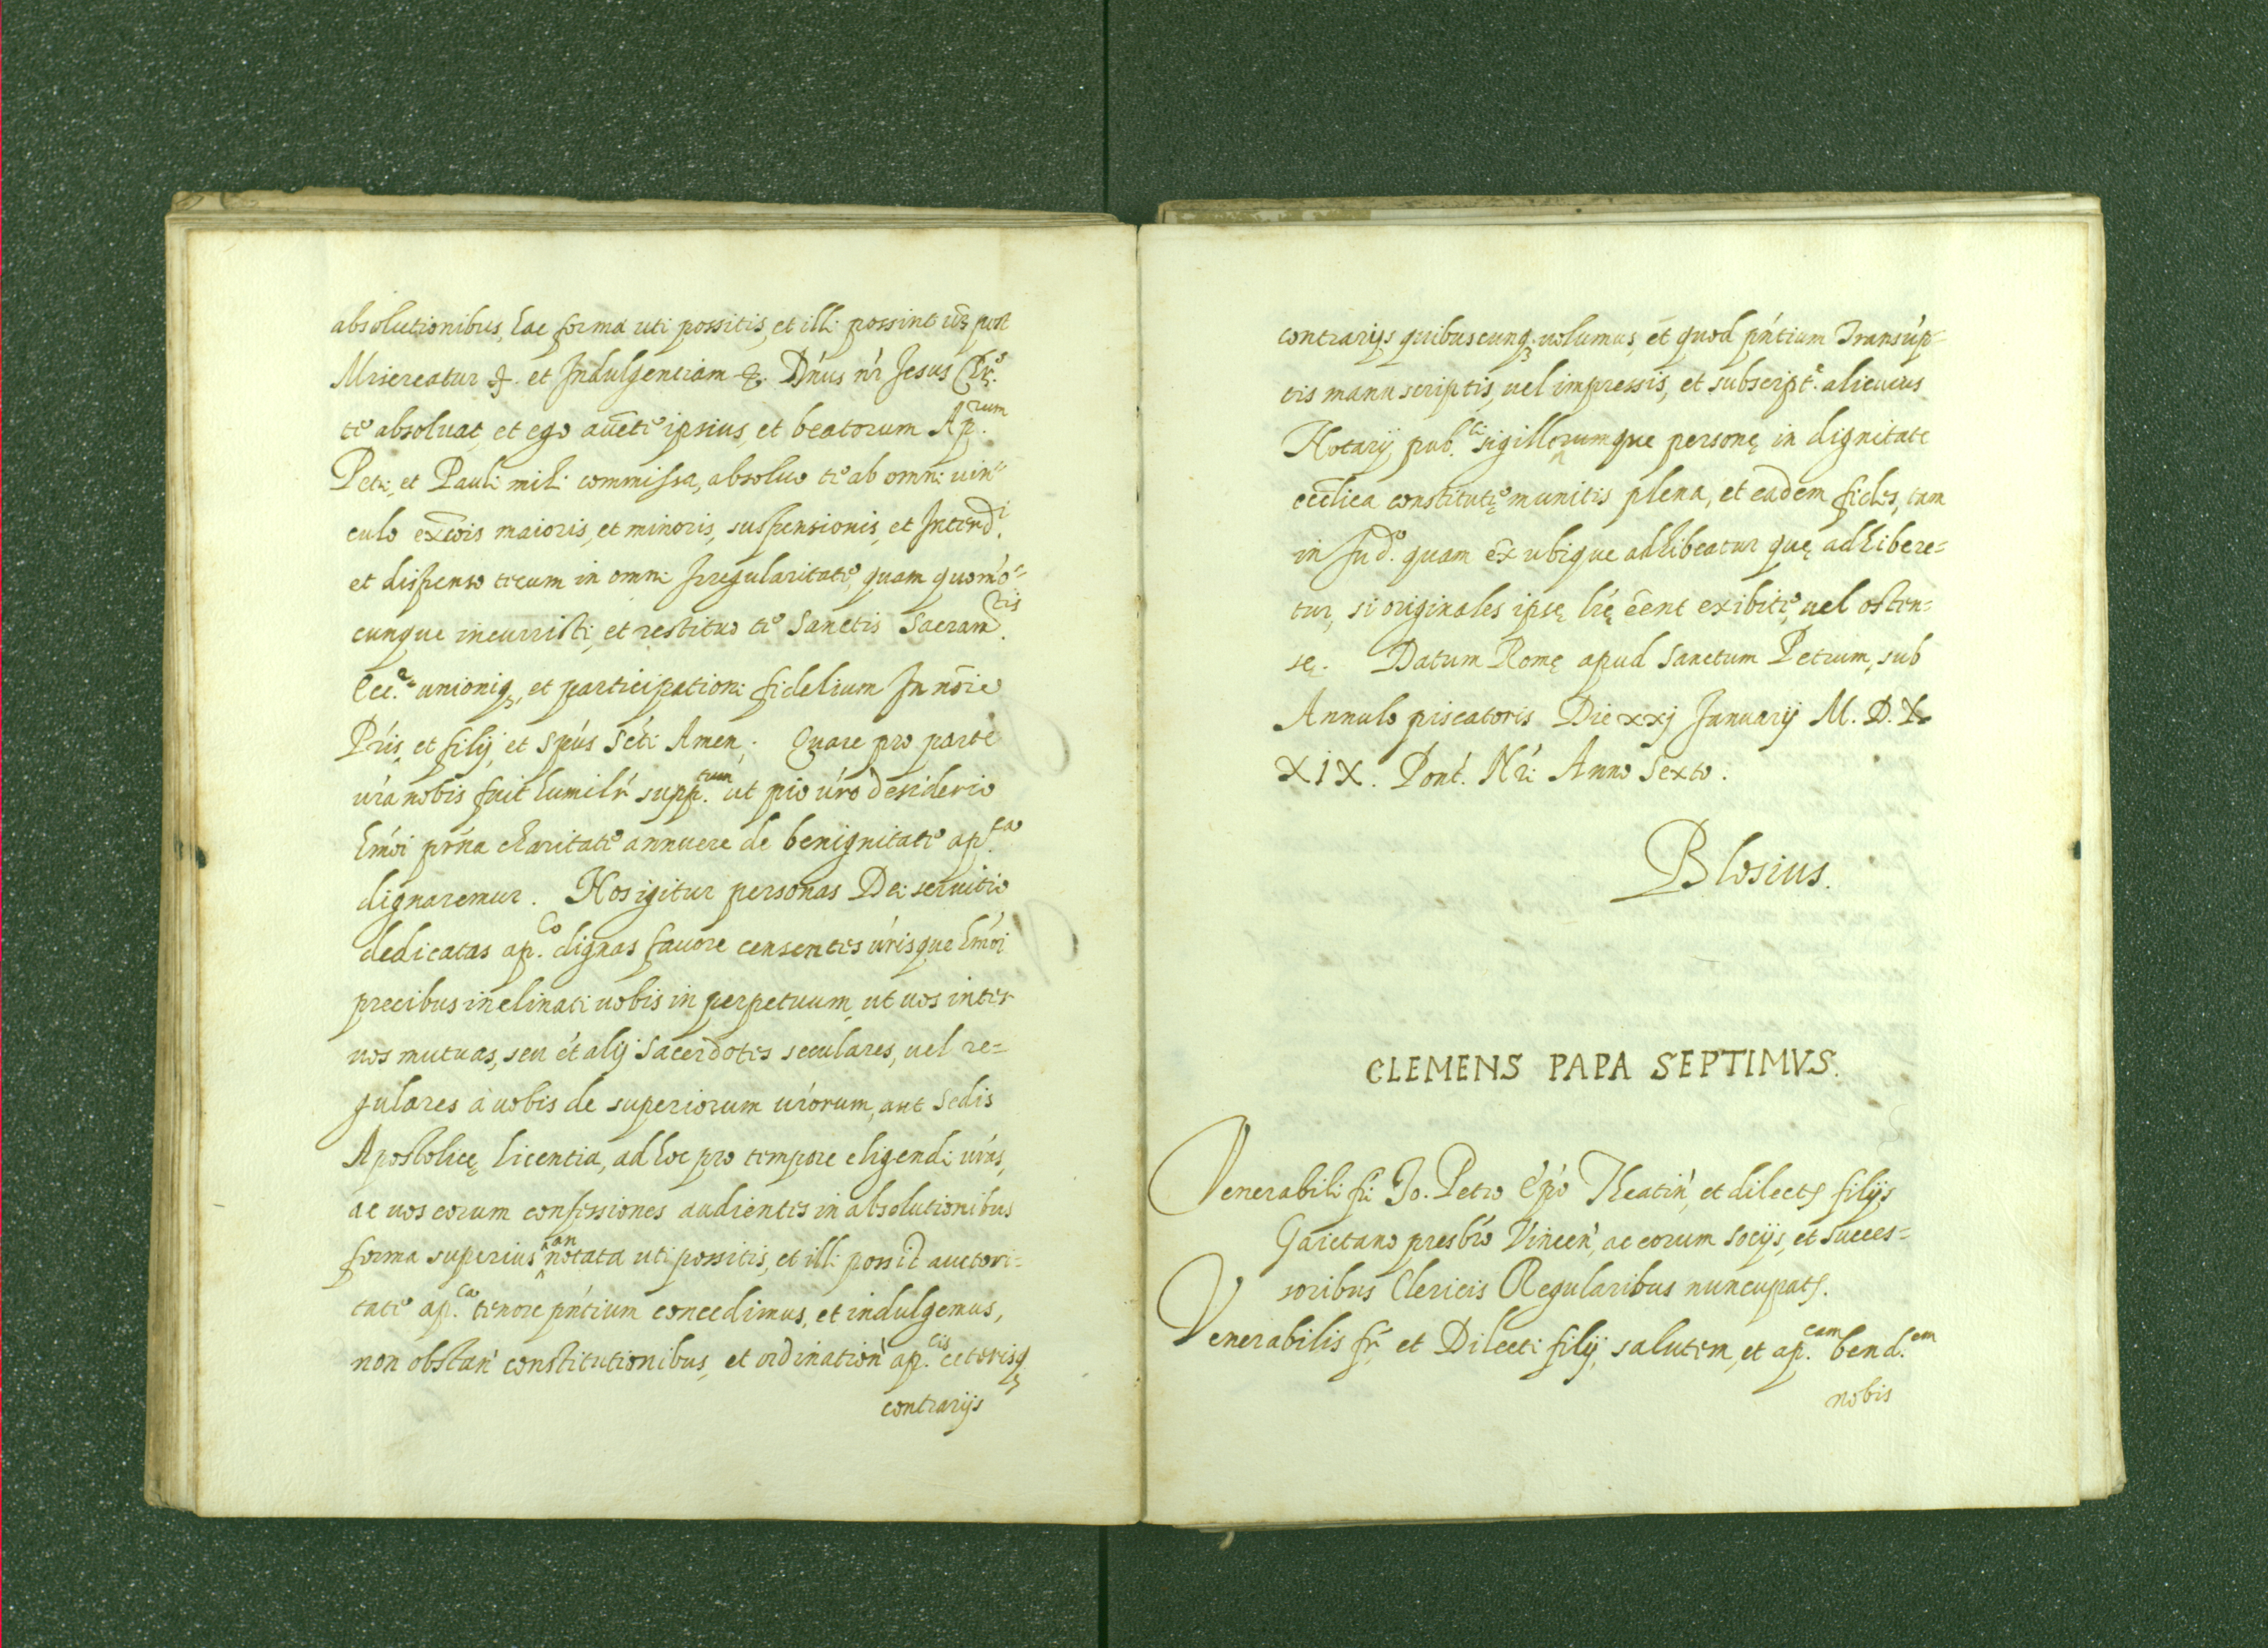 absolutionibus, hac forma uti possitis, et illi possint vz post
Misereatur &. et Indulgentiam &. D'nus n'r Jesus Chrs.
te absoluat, et ego aucte ipsius, et beatorum Ap.rum
Petri, et Pauli mihi commissa, absoluo te ab omni uin=
culo exc̄ois maioris, et minoris, suspensionis, et Interd.i
et dispenso tecum in omni Irregularitate, quam quom'o=
cunque incurristi, et restituo te Sanctis Sacram.tis
Ecc.e unioniq3, et participationi fidelium In nōie
P'ris, et filij, et Sp'us S'cti Amen. Quare pro parte
u'ra nobis fuit humil'r supp.tum ut pio u'ro desiderio
h'moi pr'na charitate annuere de benignitate ap.ca
dignaremur. Nos igitur personas Dei seruitio
dedicatas ap.co dignas fauore censentes u'risque h'moi
precibus inclinati uobis in perpetuum, ut uos inter
uos mutuas, seu e't alij Sacerdotes seculares, uel re=
gulares à uobis de superiorum u'rorum, aut Sedis
Apostolicę licentia, ad hoc pro tempore eligendi u'ras,
ac uos eorum confessiones audientes in absolutionibus
forma superius annotata uti possitis, et illi possit auctori=
tate ap.ca tenore p'ntium concedimus, et indulgemus,
non obstan' constitutionibus, et ordination' ap.cis ceterisq3
contrarijs
contrarijs quibuscunq3. uolumus, et quod p'ntium Transu'p=
tis manu scriptis, uel impressis, et subscript.e alicuius
Notarij pub.ci sigillorumque personę in dignitate
ecc̄lica constitutę munitis plena, et eadem fides, tam
in Jud.o quam ex̄ ubique adhibeatur quę adhibere=
tur, si originales ipsę l'rę e̅ent exibite, uel osten=
sę. Datum Romę apud Sanctum Petrum, sub
Annulo piscatoris Die xxj Januarij M. D. X
XIX. Pont'. N'ri Anno Sexto.
Blosius.
CLEMENS PAPA SEPTIMVS.
Venerabili fr'i Jo. Petro E'po' Theatin', et dilectis filijs
Gaietano presb'ro Vincen', ac eorum socijs, et succes=
soribus Clericis Regularibus nuncupatis.
Venerabilis fr', et Dilecti filij, salutem, et ap.cam bend.em
nobis